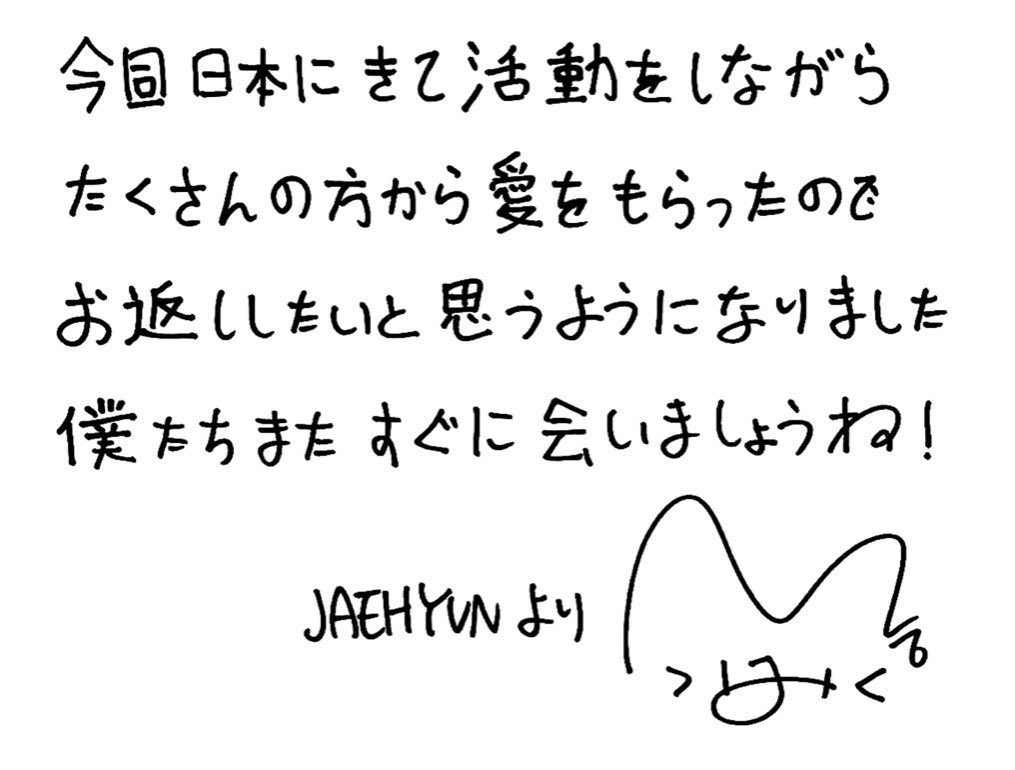 今回日本にきて活動をしながら
たくさんの方から愛をもらったので
お返ししたいと思うようになりました
僕たちまたすぐに会いましょうね！
JAEHYUNより